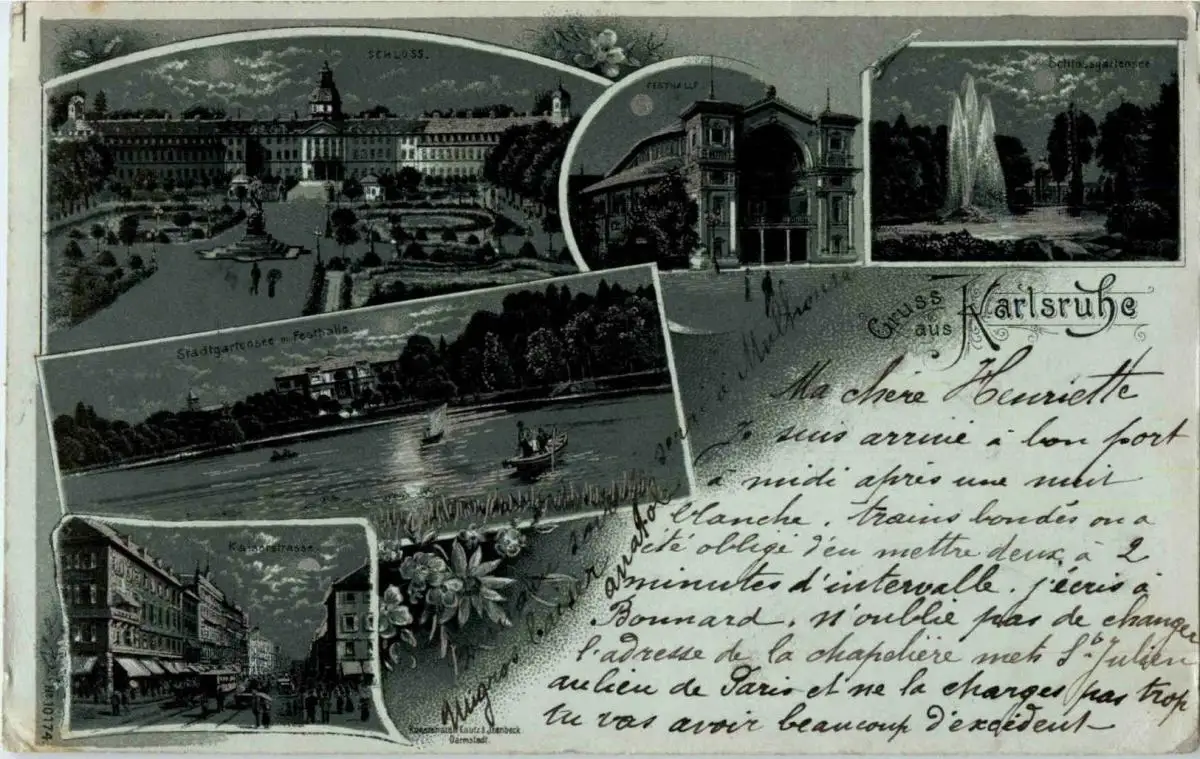 SCHLOSS.
FESTHALLE
Schlossgartensee
Gruss
aus Karlsruhe
Stadtgartensee m. Festhalle
Kaiserstrasse
Ma chère Henriette
Je suis arrivé à bon port
à midi après une nuit
blanche. trains bondés on a
été obligé d'en mettre deux à 2
minutes d'intervalle. j'écris à
Bonnard. n'oublie pas de changer
l'adresse de la chapelière mets St Julien
au lieu de Paris et ne la charges pas trop
tu vas avoir beaucoup d'excédent
à Mulhouse
Anatole
Darmstadt.
10174